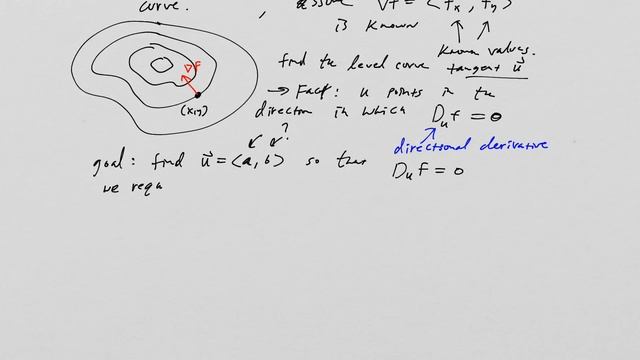 curve. , assume ∇f = <fx, fy>
is known
known values.
find the level curve tangent u⃗
→ Fact: u points in the
direction in which Duf = 0
∇f
(x,y)
?
directional derivative
goal: find u⃗ = <a, b> so that Duf = 0
we requ